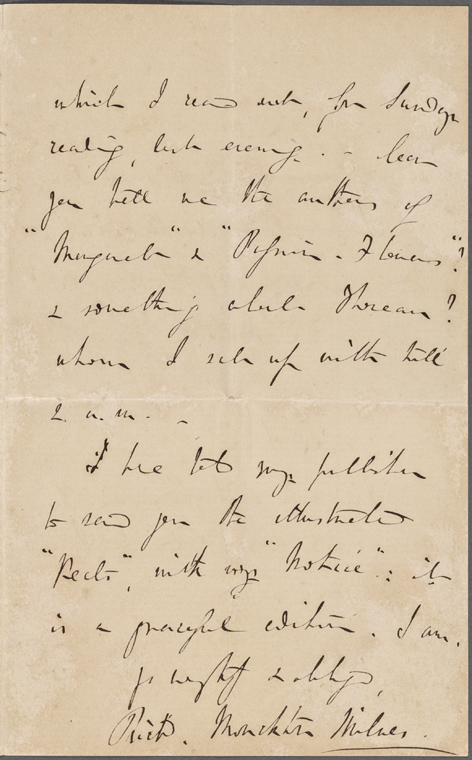 which I read out, for Sunday
reading, last evening. - Can
you tell me the authors of
"Margaret" & "Passion-Flowers"?
& something about Thoreau?
whom I sat up with till
2 a.m. -
I have told my publisher
to send you the illustrated
"Keats", with my "Notice": it
is a graceful edition. I am.
yrs & obliged,
Richd. Monckton Milnes.